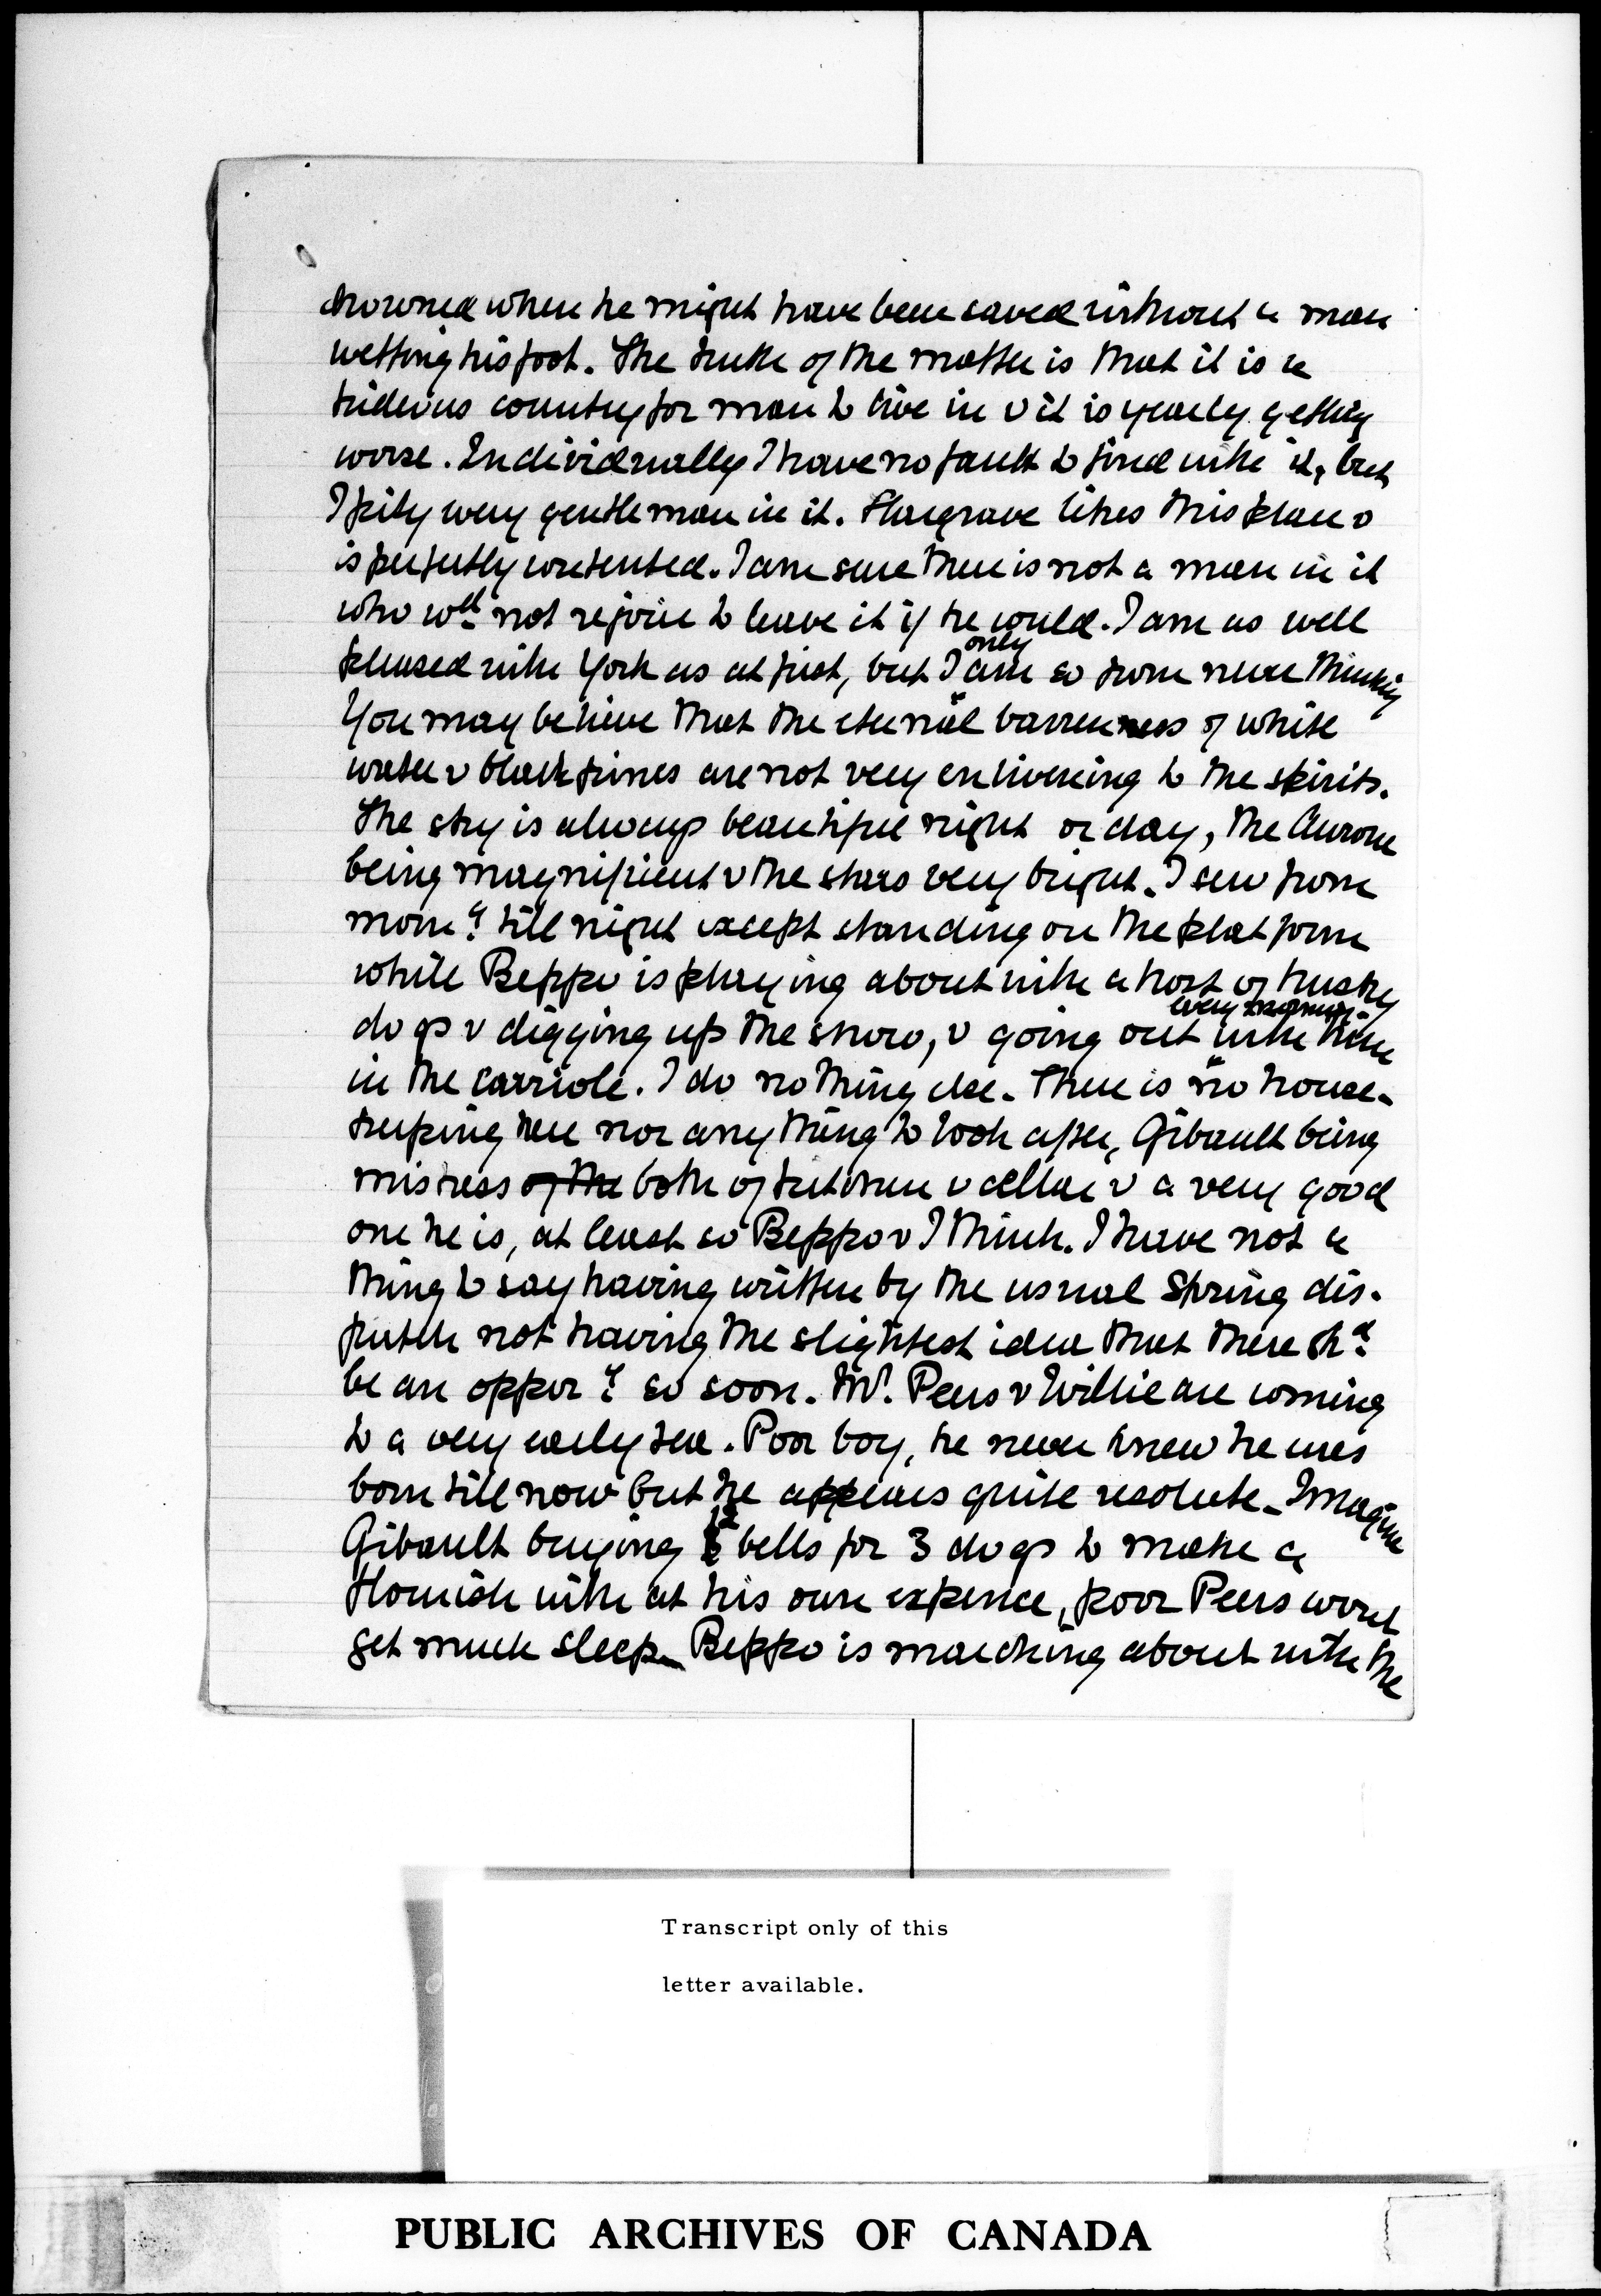 drowned when he might have been saved without a man
wetting his foot. The truth of the matter is that it is a
hideous country for man to live in & it is yearly getting
worse. Individually I have no fault to find with it, but
I pity every gentleman in it. Hargrave likes this place &
is perfectly contented. I am sure there is not a man in it
who wld not rejoice to leave it if he could. I am as well
pleased with York as at first, but I only am so from never thinking
You may believe that the eternal barrenness of white
water & black pines are not very enlivening to the spirits.
The sky is always beautiful night or day, the Aurora
being magnificent & the stars very bright. I sew from
morng till night except standing on the platform
while Beppo is playing about with a host of husky
dogs & digging up the snow, & going out every morning with him
in the carriole. I do nothing else. There is no house-
keeping here nor anything to look after, Gibault being
mistress of the both of kitchen & cellar & a very good
one he is, at least so Beppo & I think. I have not a
thing to say having written by the usual Spring dis-
patch not having the slightest idea that there shd
be an opporty so soon. Mr. Peers & Willie are coming
to a very early tea. Poor boy, he never knew he was
born till now but he appears quite resolute. Imagine
Gibault buying 12 bells for 3 dogs to make a
flourish with at his own expence, poor Peers wont
get much sleep. Beppo is marching about with the
Transcript only of this
letter available.
PUBLIC ARCHIVES OF CANADA